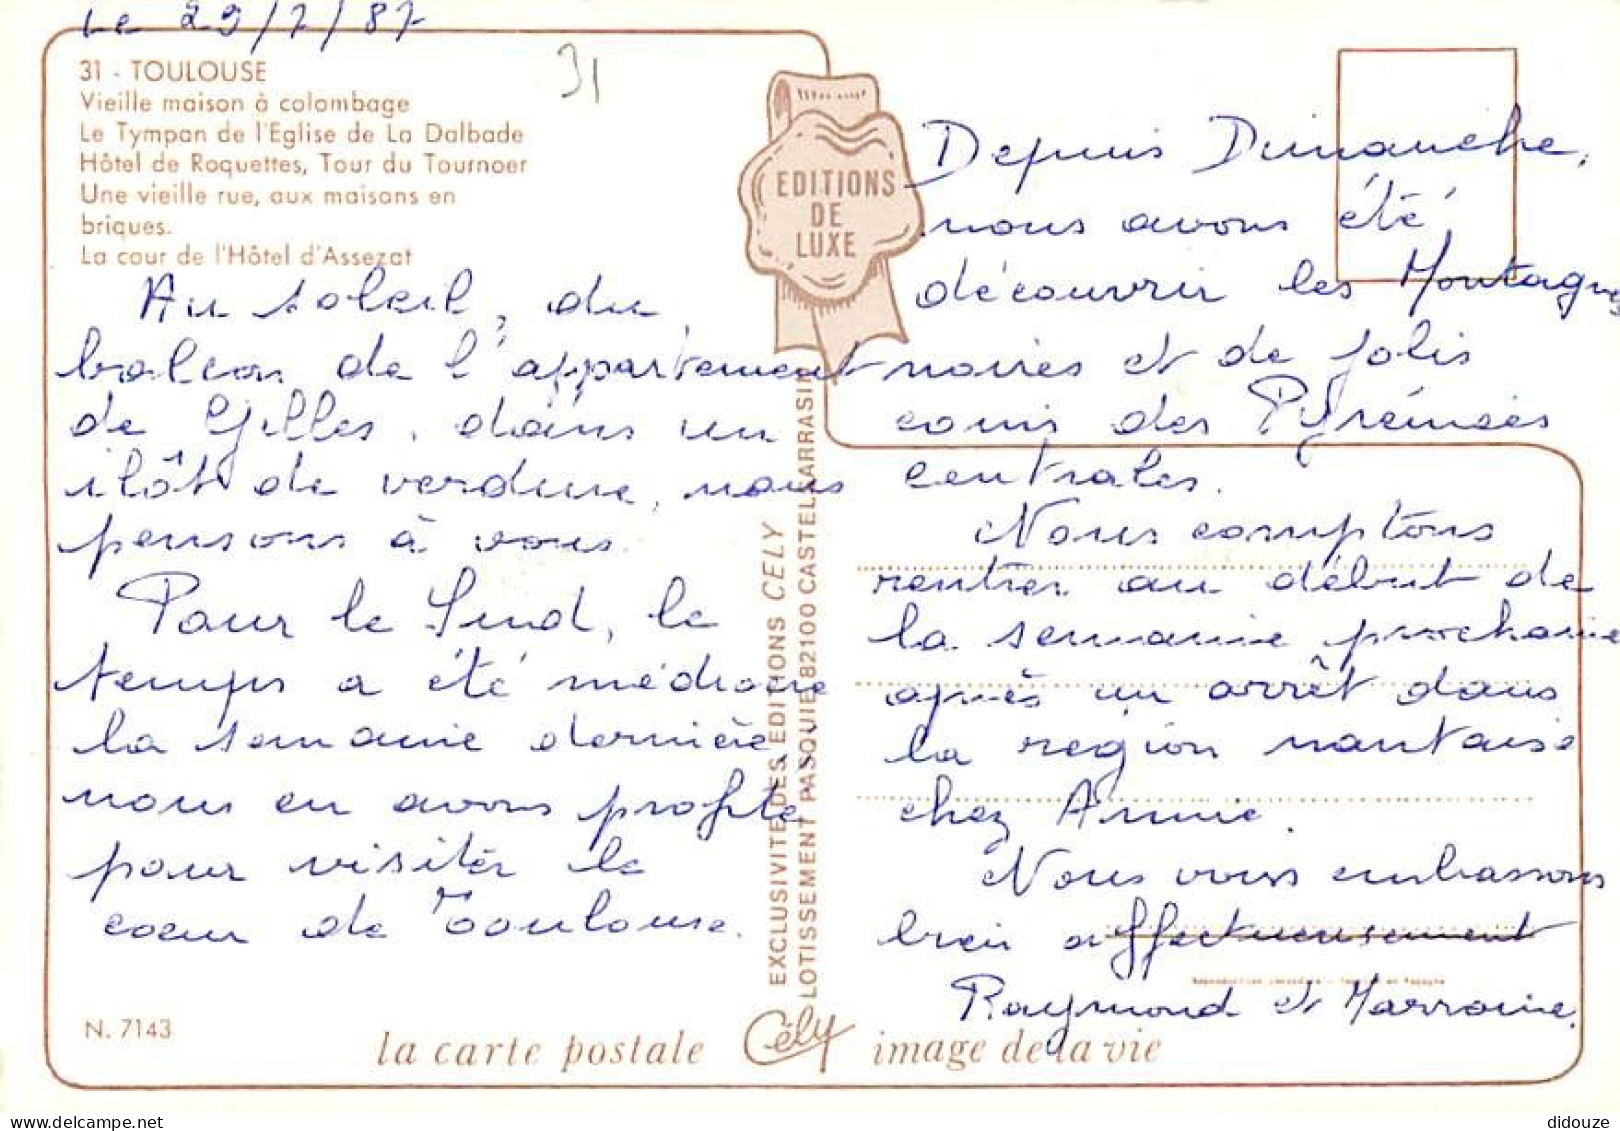 Le 29/7/87
31
31 - TOULOUSE
Vieille maison à colombage
Le Tympan de l'Eglise de La Dalbade
Hôtel de Roquettes, Tour du Tournoer
Une vieille rue, aux maisons en
briques.
La cour de l'Hôtel d'Assezat
Au soleil, du
balcon de l'appartement
de Gilles, dans un
ilôt de verdure, nous
pensons à vous.
Pour le Sud, le
temps a été médiocre
la semaine dernière
nous en avons profité
pour visiter le
coeur de Toulouse.
N. 7143
EDITIONS
DE
LUXE
EXCLUSIVITE DES EDITIONS CELY
LOTISSEMENT PASQUIE 82100 CASTELSARRASIN
Depuis Dimanche,
nous avons été
découvrir les Montagnes
noires et de jolis
coins des Pyrénées
centrales.
Nous comptons
rentrer au début de
la semaine prochaine
après un arrêt dans
la région nantaise
chez Annie.
Nous vous embrassons
bien affectueusement
Raymond et Marraine.
la carte postale Cély image de la vie
didouze